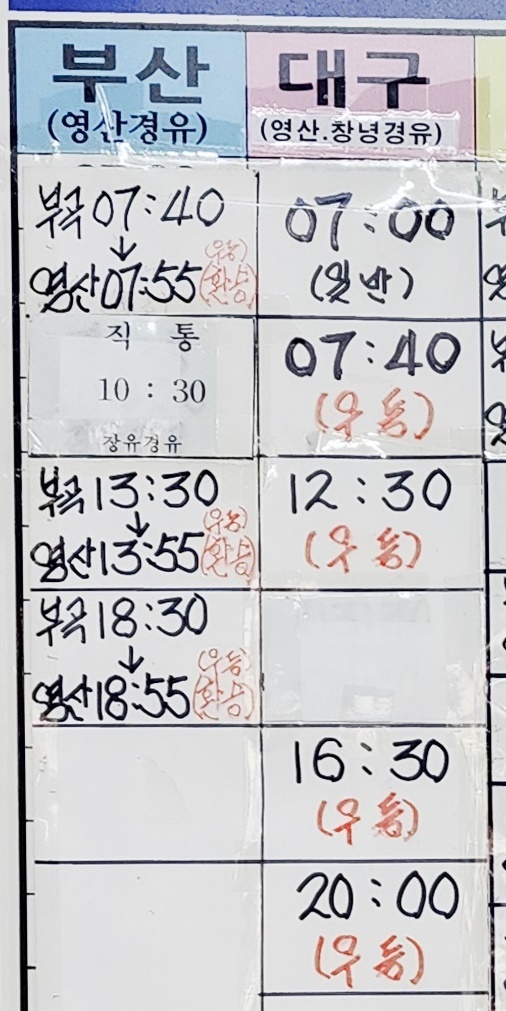 부산
(영산경유)
부곡 07:40
↓
영산 07:55
(우등)
(환승)
직 통
10 : 30
장유경유
부곡 13:30
↓
영산 13:55
(우등)
(환승)
부곡 18:30
↓
영산 18:55
(우등)
(환승)
대구
(영산.창녕경유)
07:00
(일반)
07:40
(우등)
12:30
(우등)
16:30
(우등)
20:00
(우등)